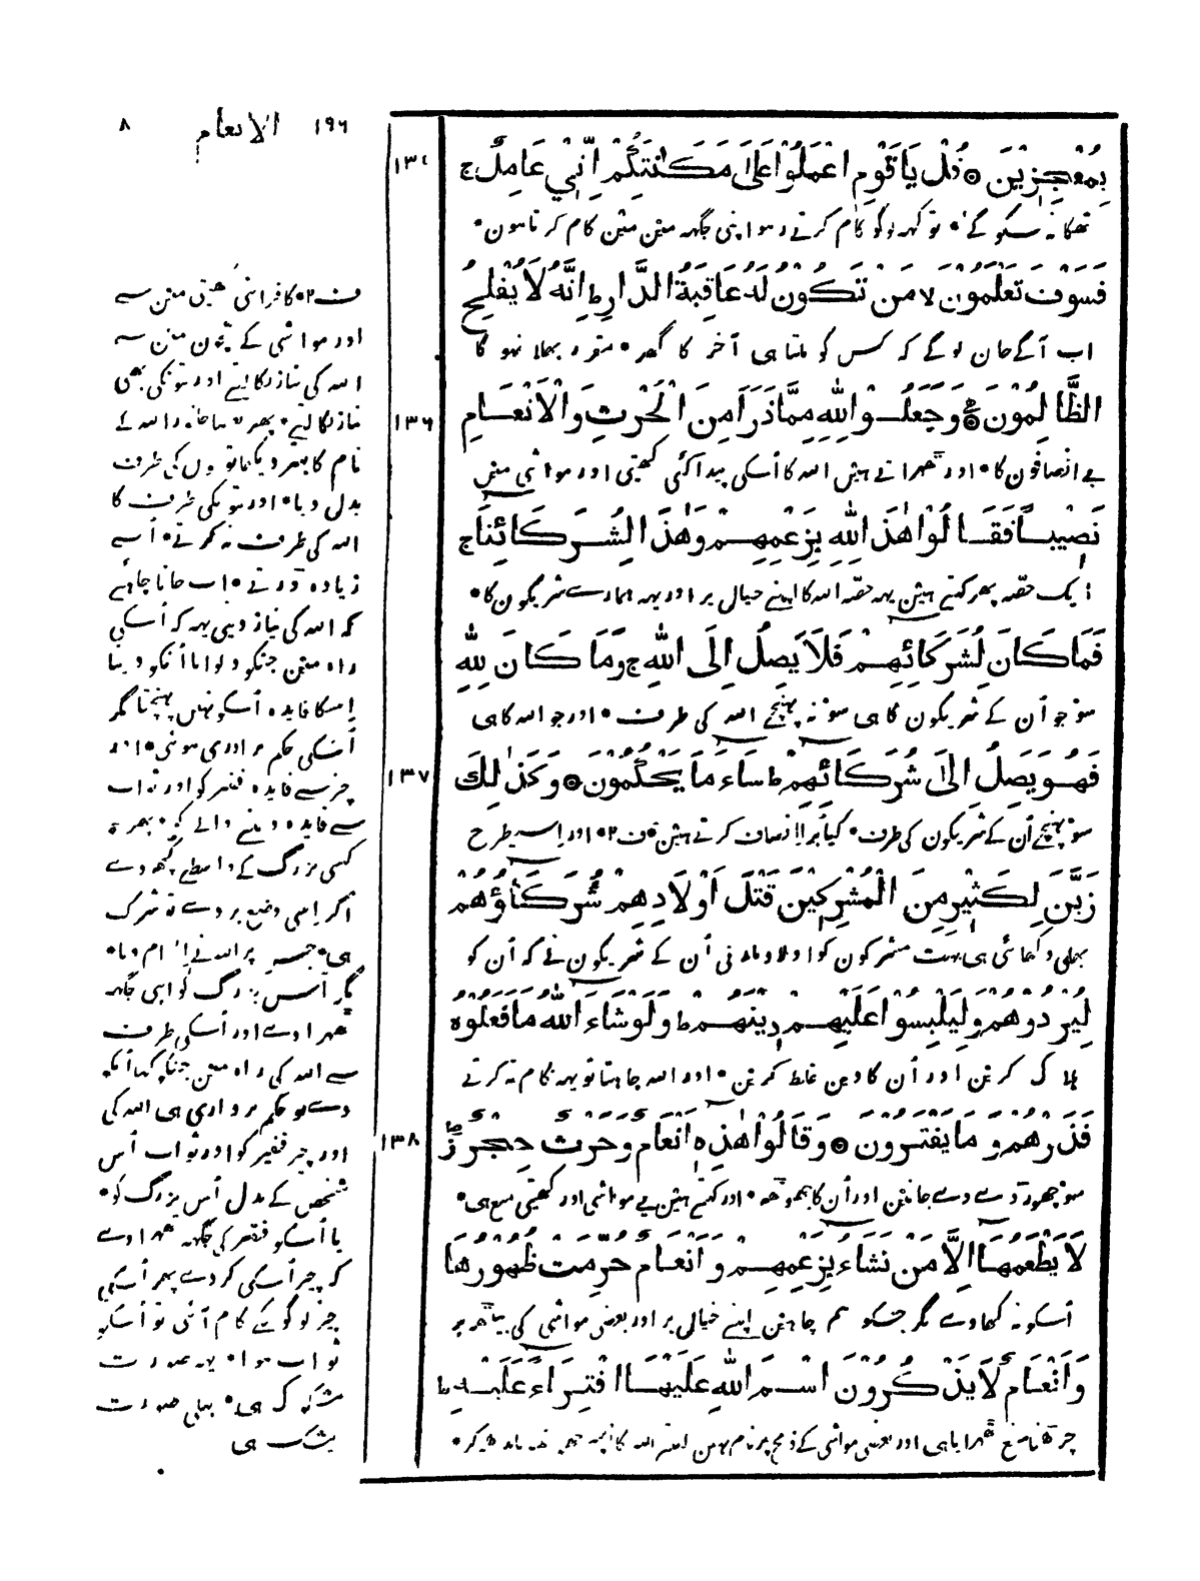 ١٩٦ الانعام ٨
بِمُعْجِزِيْنَ ○ قُلْ يَا قَوْمِ اعْمَلُوْا عَلَىٰ مَكَانَتِكُمْ اِنِّيْ عَامِلٌ ج
١٣٤
تھکا نہ سکو گے • تو کہہ لوگو کام کرتے رہو اپنی جگہہ مین مین کام کرتا ہون •
فَسَوْفَ تَعْلَمُوْنَ لا مَنْ تَكُوْنُ لَهُ عَاقِبَةُ الدَّارِ ط اِنَّهُ لَا يُفْلِحُ
اب آگے جان لوگے کہ کس کو ملتا ہی آخر کا گھر • مقرر بھلا نہو گا
الظَّالِمُوْنَ ○ وَجَعَلُوْا لِلّٰهِ مِمَّا ذَرَأَ مِنَ الْحَرْثِ وَالْاَنْعَامِ
١٣٦
بے انصافون کا • اور تھہراتے ہین اللہ کا اسکی پیدا کئی کھیتی اور مواشی مین
نَصِيْبًا فَقَالُوْا هٰذَا لِلّٰهِ بِزَعْمِهِمْ وَهٰذَا لِشُرَكَائِنَا ج
ایک حصّہ پھر کہتے ہین یہہ حصّہ اللہ کا اپنے خیال پر اور یہہ ہمارے شریکون کا •
فَمَا كَانَ لِشُرَكَائِهِمْ فَلَا يَصِلُ اِلَى اللّٰهِ ج وَمَا كَانَ لِلّٰهِ
سو جو اُن کے شریکون کا ہی سو نہ پہنچے اللہ کی طرف • اور جو اللہ کا ہی
فَهُوَ يَصِلُ اِلَىٰ شُرَكَائِهِمْ ط سَاءَ مَا يَحْكُمُوْنَ ○ وَكَذٰلِكَ
١٣٧
سو پہنچے اُن کے شریکون کی طرف • کیا بُرا انصاف کرتے ہین • ف ٢ • اور اسیطرح
زَيَّنَ لِكَثِيْرٍ مِنَ الْمُشْرِكِيْنَ قَتْلَ اَوْلَادِهِمْ شُرَكَاؤُهُمْ
بھلی دکھائی ہی بہت مشرکون کو اولاد مارنی اُن کے شریکون نے کہ اُن کو
لِيُرْدُوْهُمْ وَلِيَلْبِسُوْا عَلَيْهِمْ دِيْنَهُمْ ط وَلَوْ شَاءَ اللّٰهُ مَا فَعَلُوْهُ
ہلاک کرین اور اُن کا دین غلط کرین • اور اللہ چاہتا تو یہہ کام نہ کرتے
فَذَرْهُمْ وَمَا يَفْتَرُوْنَ ○ وَقَالُوْا هٰذِهِ اَنْعَامٌ وَحَرْثٌ حِجْرٌ ز
١٣٨
سو چھوڑ دے وے جانین اور اُن کا جھوٹھہ • اور کہتے ہین یے مواشی اور کھیتی منع ہی •
لَا يَطْعَمُهَا اِلَّا مَنْ نَشَاءُ بِزَعْمِهِمْ وَاَنْعَامٌ حُرِّمَتْ ظُهُوْرُهَا
اُسکو نہ کھاوے مگر جسکو ہم چاہین اپنے خیال پر اور بعضی مواشی کی پیٹھہ پر
وَاَنْعَامٌ لَا يَذْكُرُوْنَ اسْمَ اللّٰهِ عَلَيْهَا افْتِرَاءً عَلَيْهِ ط
چڑھنا منع تھہرایا ہی اور بعضی مواشی کے ذبح پر نام نہین لیتے اللہ کا
ف ٢ • کافر اپنی کھیتی مین سے
اور مواشی کے بچون مین سے
اللہ کی نیاز نکالتے اور بتونکی بھی
نیاز نکالتے •
نام کا بہتر دیکھا تو بتون کی طرف
بدل دیا • اور بتونکی طرف کا
اللہ کی طرف نہ کرتے • اُسے
زیادہ ڈرتے • اب جانا چاہئے
کہ اللہ کی نیاز دینی یہہ کہ اُسکی
راہ مین جنکو دلوایا اُنکو دینا
اسکا فایدہ اُسکو نہیں پہنچتا مگر
اُسکی حکم برداری ہوئی •
چیز سے فایدہ فقیر کو اور ثواب
سے فایدہ دینے والے کو •
کسی بزرگ کے واسطے کچھ دے
اگر اسی وضع پر دے تو شرک
ہی • جس پر اللہ نے
مگر اُس بزرگ کو اپنی جگہہ
تھہراوے اور اُسکی طرف
سے اللہ کی راہ مین جنکو کہا اُنکو
دے تو حکم برداری ہی اللہ کی
اور چیز فقیر کو اور ثواب اُس
شخص کے بدل اُس بزرگ کو •
یا اُسکو فقیر کی جگہہ تھہراوے
کہ چیز اُسکی کردے پھر اُسکی
چیز لوگو نکے کام آئی تو اُسکو
ثواب ہوا • یہہ صورت
ہی • پہلی صورت
بیشک ہی